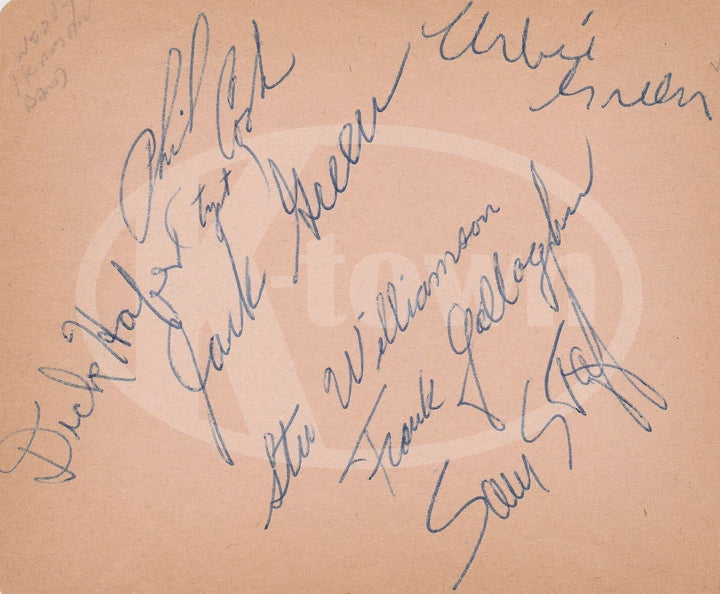 Woody
Herman
Band
Urbie
Green
Phil Cook
(tpt
Jack Green
Dick Hafer
Stu Williamson
Frank Gallagher
Sam Staff
K-town